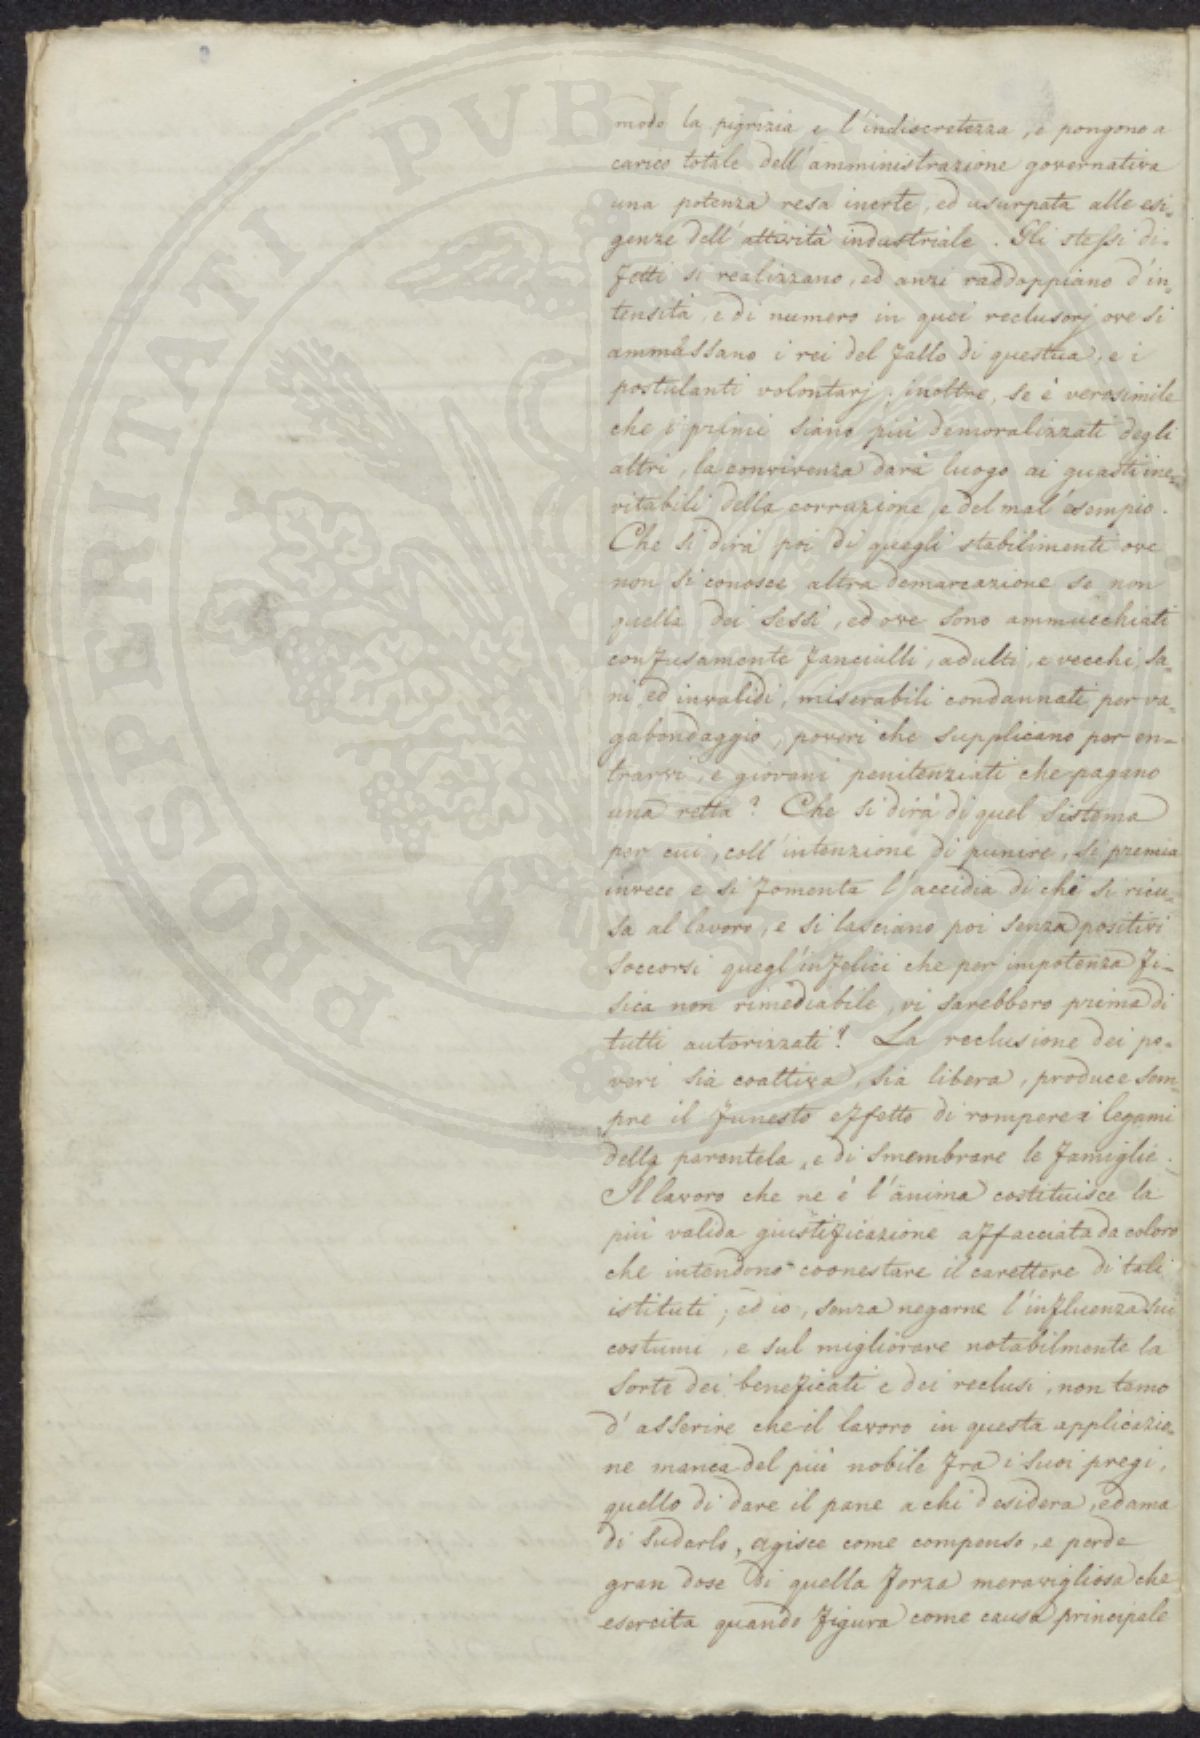 modo la pigrizia e l'indiscretezza, e pongono a
carico totale dell'amministrazione governativa
una potenza resa inerte, ed usurpata alle esi=
genze dell'attività industriale. Gli stessi di=
fetti si realizzano, ed anzi raddoppiano d'in=
tensità, e di numero in quei reclusorj ove si
ammassano i rei del fallo di questua, e i
postulanti volontarj; inoltre, se è verosimile
che i primi siano più demoralizzati degli
altri, la convivenza darà luogo ai guasti ine=
vitabili della corruzione, e del mal'esempio.
Che si dirà poi di quegli stabilimenti ove
non si conosce altra demarcazione se non
quella dei sessi, ed ove sono ammucchiati
confusamente fanciulli, adulti, e vecchi, sa=
ni, ed invalidi, miserabili condannati per va=
gabondaggio, poveri che supplicano per en=
trarvi, e giovani penitenziati che pagano
una retta? Che si dirà di quel sistema
per cui, coll'intenzione di punire, si premia
invece e si fomenta l'accidia di chi si ricu=
sa al lavoro, e si lasciano poi senza positivi
soccorsi quegl'infelici che per impotenza fi=
sica non rimediabile, vi sarebbero prima di
tutti autorizzati? La reclusione dei po=
veri sia coattiva, sia libera, produce sem=
pre il funesto effetto di rompere i legami
della parentela, e di smembrare le famiglie.
Il lavoro che ne è l'anima costituisce la
più valida giustificazione affacciata da coloro
che intendono coonestare il carettere di tali
istituti; ed io, senza negarne l'influenza sui
costumi, e sul migliorare notabilmente la
sorte dei beneficati e dei reclusi, non temo
d'asserire che il lavoro in questa applicazio=
ne manca del più nobile fra i suoi pregi,
quello di dare il pane a chi desidera, ed ama
di sudarlo, agisce come compenso, e perde
gran dose di quella forza meravigliosa che
esercita quando figura come causa principale
PROSPERITATI PVBLICAE